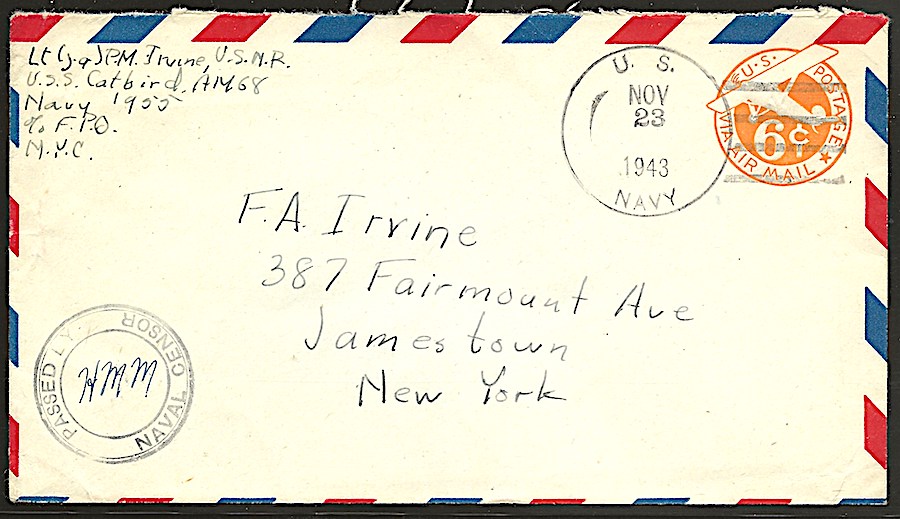 Lt (j.g.) P.M. Irvine, U.S.N.R.
U.S.S. Catbird, AM68
Navy 1955
c/o F.P.O.
N.Y.C.
U. S.
NOV
23
1943
NAVY
U.S. POSTAGE
6¢
VIA AIR MAIL
F.A. Irvine
387 Fairmount Ave
Jamestown
New York
PASSED BY
NAVAL CENSOR